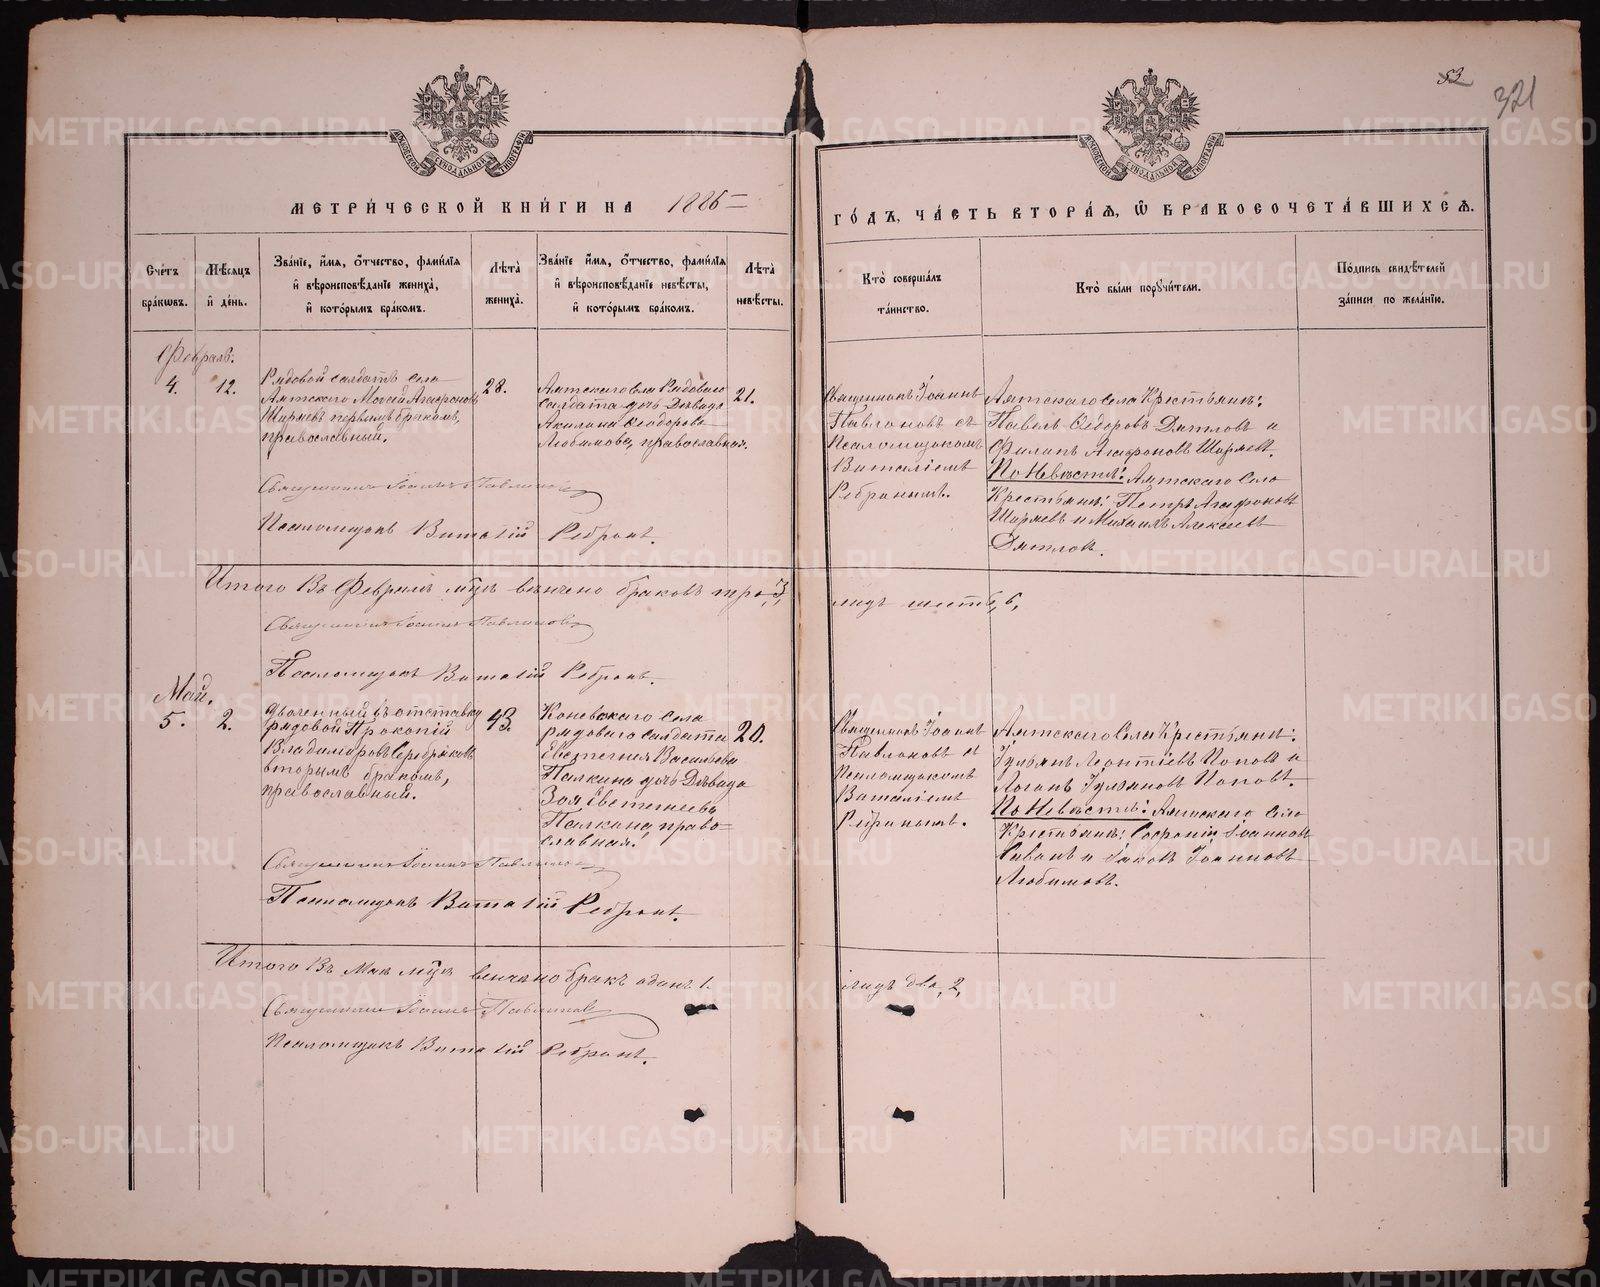 53
321
МЕТРИ́ЧЕСКОЙ КНИ́ГИ НА 1886
ГО́ДЪ, ЧА́СТЬ ВТОРА́Я, Ѿ БРАКОСОЧЕТА́ВШИХСЯ.
Сче́тъ бра́кѡвъ.
Мѣ́сяцъ и́ де́нь.
Зва́нїе, и́мя, о́тчество, фами́лїя
и́ вѣроисповѣ́данїе жениха̀,
и́ кото́рымъ бра́комъ.
Лѣта̀ жениха̀.
Зва́нїе и́мя, о́тчество, фами́лїя
и́ вѣроисповѣ́данїе невѣ́сты,
и́ кото́рымъ бра́комъ.
Лѣта̀ невѣ́сты.
Кто̀ соверша́лъ та́инство.
Кто̀ бы́ли порꙋчи́тели.
По́дпись свидѣ́телей за́писи по жела́нїю.
Февраль.
4.
12.
Рядовой солдатъ села
Аятскаго Моисей Агафоновъ
Ширяевъ первымъ бракомъ,
православный.
28.
Аятскаго села Рядоваго
солдата дочь Дѣвица
Акилина Ѳеодорова
Любимова, православная.
21.
Священникъ Іоаннъ
Павлиновъ съ
Псаломщикомъ
Виталіемъ
Ребринымъ.
Аятскаго села Крестьяне:
Павелъ Ѳедоровъ Дятловъ и
Филипъ Агафоновъ Ширяевъ.
По Невѣстѣ: Аятскаго села
Крестьяне: Петръ Агафоновъ
Ширяевъ и Михаилъ Алексеевъ
Дятловъ.
Священникъ Іоаннъ Павлиновъ
Псаломщикъ Виталій
Итого Въ Февралѣ мцѣ вѣнчано браковъ три 3,
лицъ шесть, 6,
Священникъ Іоаннъ Павлиновъ
Псаломщикъ Виталій
Май.
5.
2.
Уволенный въ отставку
рядовой Прокопій
Владиміровъ Серебряковъ
вторымъ бракомъ,
православный.
43.
Коневскаго села
рядоваго солдата
Евстегнея Васильева
Палкина дочь Дѣвица
Зоя Евстегнеева
Палкина, право-
славная.
20.
Священникъ Іоаннъ
Павлиновъ съ
Псаломщикомъ
Виталіемъ
Ребринымъ.
Аятскаго Села Крестьяне:
Іульянъ Леонтіевъ Поповъ и
Логинъ Іульяновъ Поповъ.
По Невѣстѣ: Аятскаго села
Крестьяне: Софроній Іоанновъ
и Іаковъ Іоанновъ
Любимовъ.
Священникъ Іоаннъ Павлиновъ
Псаломщикъ Виталій
Итого Въ Маѣ мцѣ венчано бракъ одинъ 1.
лицъ два, 2,
Священникъ Іоаннъ Павлиновъ
Псаломщикъ Виталій
METRIKI.GASO-URAL.RU